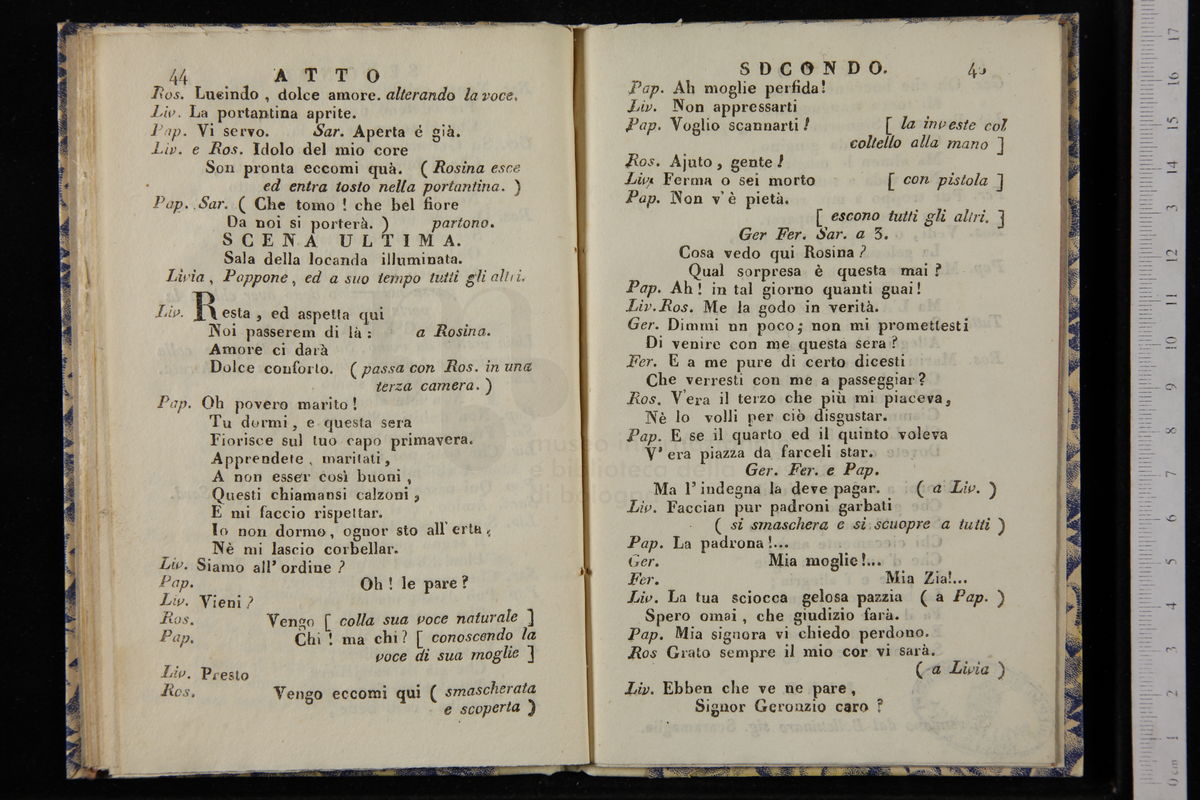 44 ATTO
Ros. Lucindo, dolce amore. alterando la voce.
Liv. La portantina aprite.
Pap. Vi servo. Sar. Aperta é già.
Liv. e Ros. Idolo del mio core
Son pronta eccomi quà. ( Rosina esce
ed entra tosto nella portantina. )
Pap. Sar. ( Che tomo ! che bel fiore
Da noi si porterà. ) partono.
SCENA ULTIMA.
Sala della locanda illuminata.
Livia, Pappone, ed a suo tempo tutti gli altri.
Liv. Resta, ed aspetta qui
Noi passerem di là : a Rosina.
Amore ci darà
Dolce conforto. ( passa con Ros. in una
terza camera. )
Pap. Oh povero marito !
Tu dormi, e questa sera
Fiorisce sul tuo capo primavera.
Apprendete, maritati,
A non esser così buoni,
Questi chiamansi calzoni,
E mi faccio rispettar.
Io non dormo, ognor sto all'erta,
Nè mi lascio corbellar.
Liv. Siamo all' ordine ?
Pap. Oh ! le pare ?
Liv. Vieni ?
Ros. Vengo [ colla sua voce naturale ]
Pap. Chi ! ma chi ? [ conoscendo la
voce di sua moglie ]
Liv. Presto
Ros. Vengo eccomi qui ( smascherata
e scoperta )
SDCONDO.
Pap. Ah moglie perfida !
Liv. Non appressarti
Pap. Voglio scannarti ! [ la investe col
coltello alla mano ]
Ros. Ajuto, gente !
Liv. Ferma o sei morto [ con pistola ]
Pap. Non v' è pietà.
[ escono tutti gli altri. ]
Ger Fer. Sar. a 3.
Cosa vedo qui Rosina ?
Qual sorpresa è questa mai ?
Pap. Ah ! in tal giorno quanti guai !
Liv. Ros. Me la godo in verità.
Ger. Dimmi nn poco; non mi promettesti
Di venire con me questa sera ?
Fer. E a me pure di certo dicesti
Che verresti con me a passeggiar ?
Ros. V'era il terzo che più mi piaceva,
Nè lo volli per ciò disgustar.
Pap. E se il quarto ed il quinto voleva
V' era piazza da farceli star.
Ger. Fer. e Pap.
Ma l' indegna la deve pagar. ( a Liv. )
Liv. Faccian pur padroni garbati
( si smaschera e si scuopre a tutti )
Pap. La padrona !...
Ger. Mia moglie !...
Fer. Mia Zia!...
Liv. La tua sciocca gelosa pazzia ( a Pap. )
Spero omai, che giudizio farà.
Pap. Mia signora vi chiedo perdono.
Ros Grato sempre il mio cor vi sarà.
( a Livia )
Liv. Ebben che ve ne pare,
Signor Geronzio caro ?